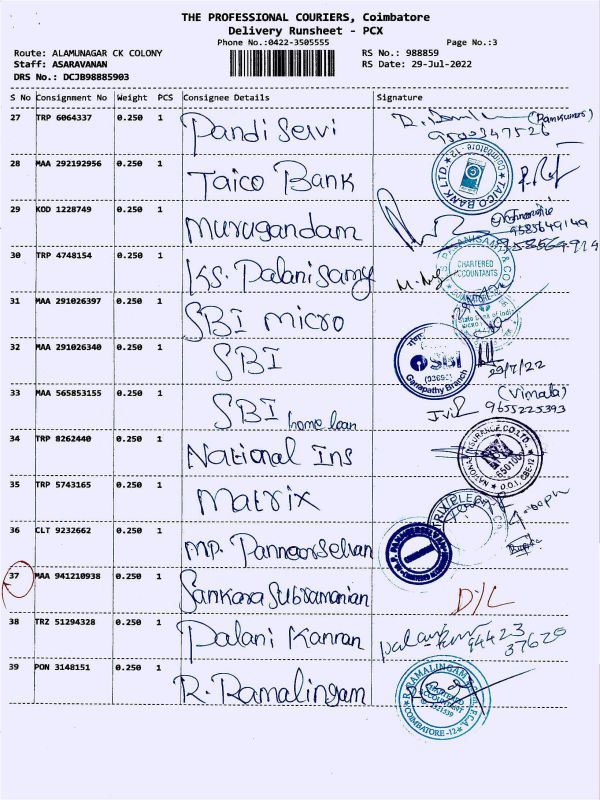 THE PROFESSIONAL COURIERS, Coimbatore
Delivery Runsheet - PCX
Phone No.:0422-3505555 Page No.:3
Route: ALAMUNAGAR CK COLONY RS No.: 988859
Staff: ASARAVANAN RS Date: 29-Jul-2022
DRS No.: DCJB98885903
S No Consignment No Weight PCS Consignee Details Signature
27 TRP 6064337 0.250 1 Pandi Selvi
28 MAA 292192956 0.250 1 Taico Bank TAICO BANK LTD. Coimbatore - 12
29 KOD 1228749 0.250 1 Murugandam
30 TRP 4748154 0.250 1 KS. Palanisamy CHARTERED ACCOUNTANTS
31 MAA 291026397 0.250 1 SBI micro
32 MAA 291026340 0.250 1 SBI SBI Ganapathy Branch 29/7/22
33 MAA 565853155 0.250 1 SBI home loan (Vimala) 9655225393
34 TRP 8262440 0.250 1 National Ins
35 TRP 5743165 0.250 1 Matrix
36 CLT 9232662 0.250 1 MP. Panneerselvan
37 MAA 941210938 0.250 1 Sankara Subramanian D/L
38 TRZ 51294328 0.250 1 Palani Kannan 94423 37620
39 PON 3148151 0.250 1 R. Ramalingam COIMBATORE-12